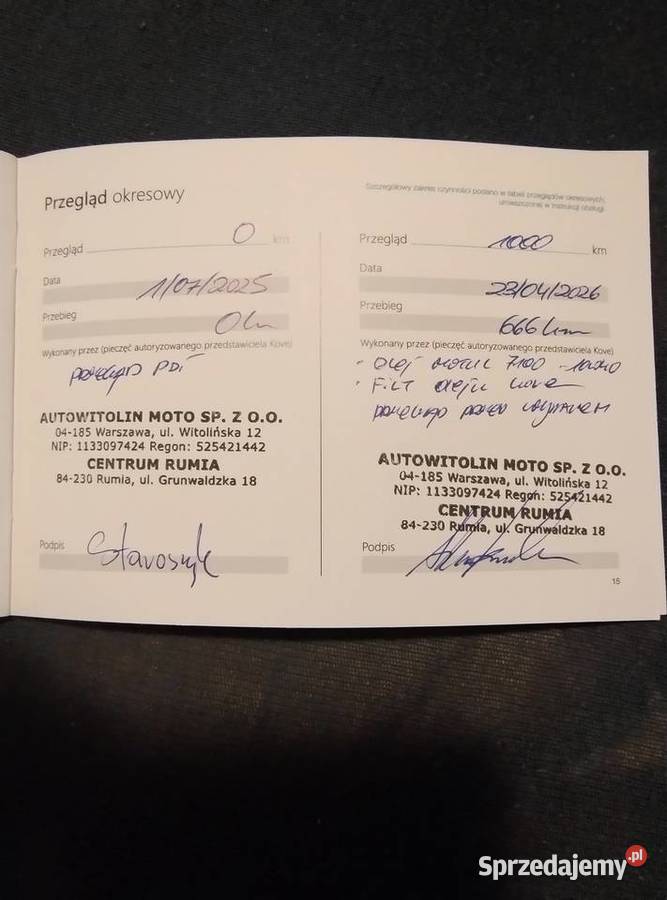 Przegląd okresowy
Przegląd 0 km
Data 1/07/2025
Przebieg 0 km
Wykonany przez (pieczęć autoryzowanego przedstawiciela Kove)
przegląd PDI
AUTOWITOLIN MOTO SP. Z O.O.
04-185 Warszawa, ul. Witolińska 12
NIP: 1133097424 Regon: 525421442
CENTRUM RUMIA
84-230 Rumia, ul. Grunwaldzka 18
Podpis
Szczegółowy zakres czynności podano w tabeli przeglądów okresowych,
umieszczonej w instrukcji obsługi.
Przegląd 1000 km
Data 23/04/2026
Przebieg 666 km
Wykonany przez (pieczęć autoryzowanego przedstawiciela Kove)
- olej MOTUL 7100
- Filt oleju Kove
AUTOWITOLIN MOTO SP. Z O.O.
04-185 Warszawa, ul. Witolińska 12
NIP: 1133097424 Regon: 525421442
CENTRUM RUMIA
84-230 Rumia, ul. Grunwaldzka 18
Podpis
15
Sprzedajemy.pl